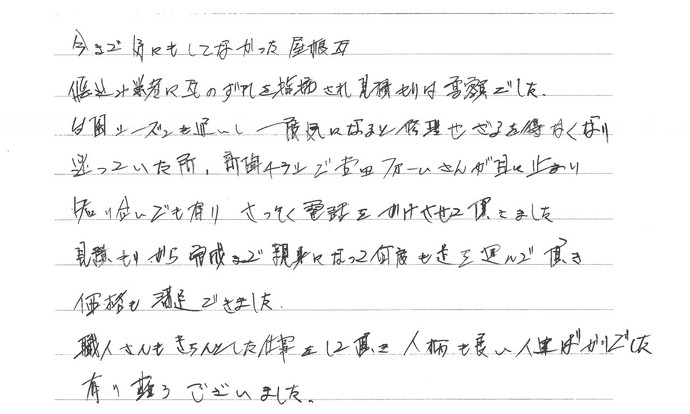 今まで気にもしてなかった屋根瓦
飛込み業者に瓦のずれを指摘され見積もりは高額でした.
台風シーズンも近いし一度気になると修理せざるを得なくなり
迷っていた所、新聞チラシで吉田フォームさんが目に止まり
知り合いでも有り さっそく電話をかけさせて頂きました
見積もりから完成まで親身になって何度も足を運んで頂き
価格も満足できました.
職人さんもきちんとした仕事をして頂き人柄も良い人達ばかりでした
有り難うございました。